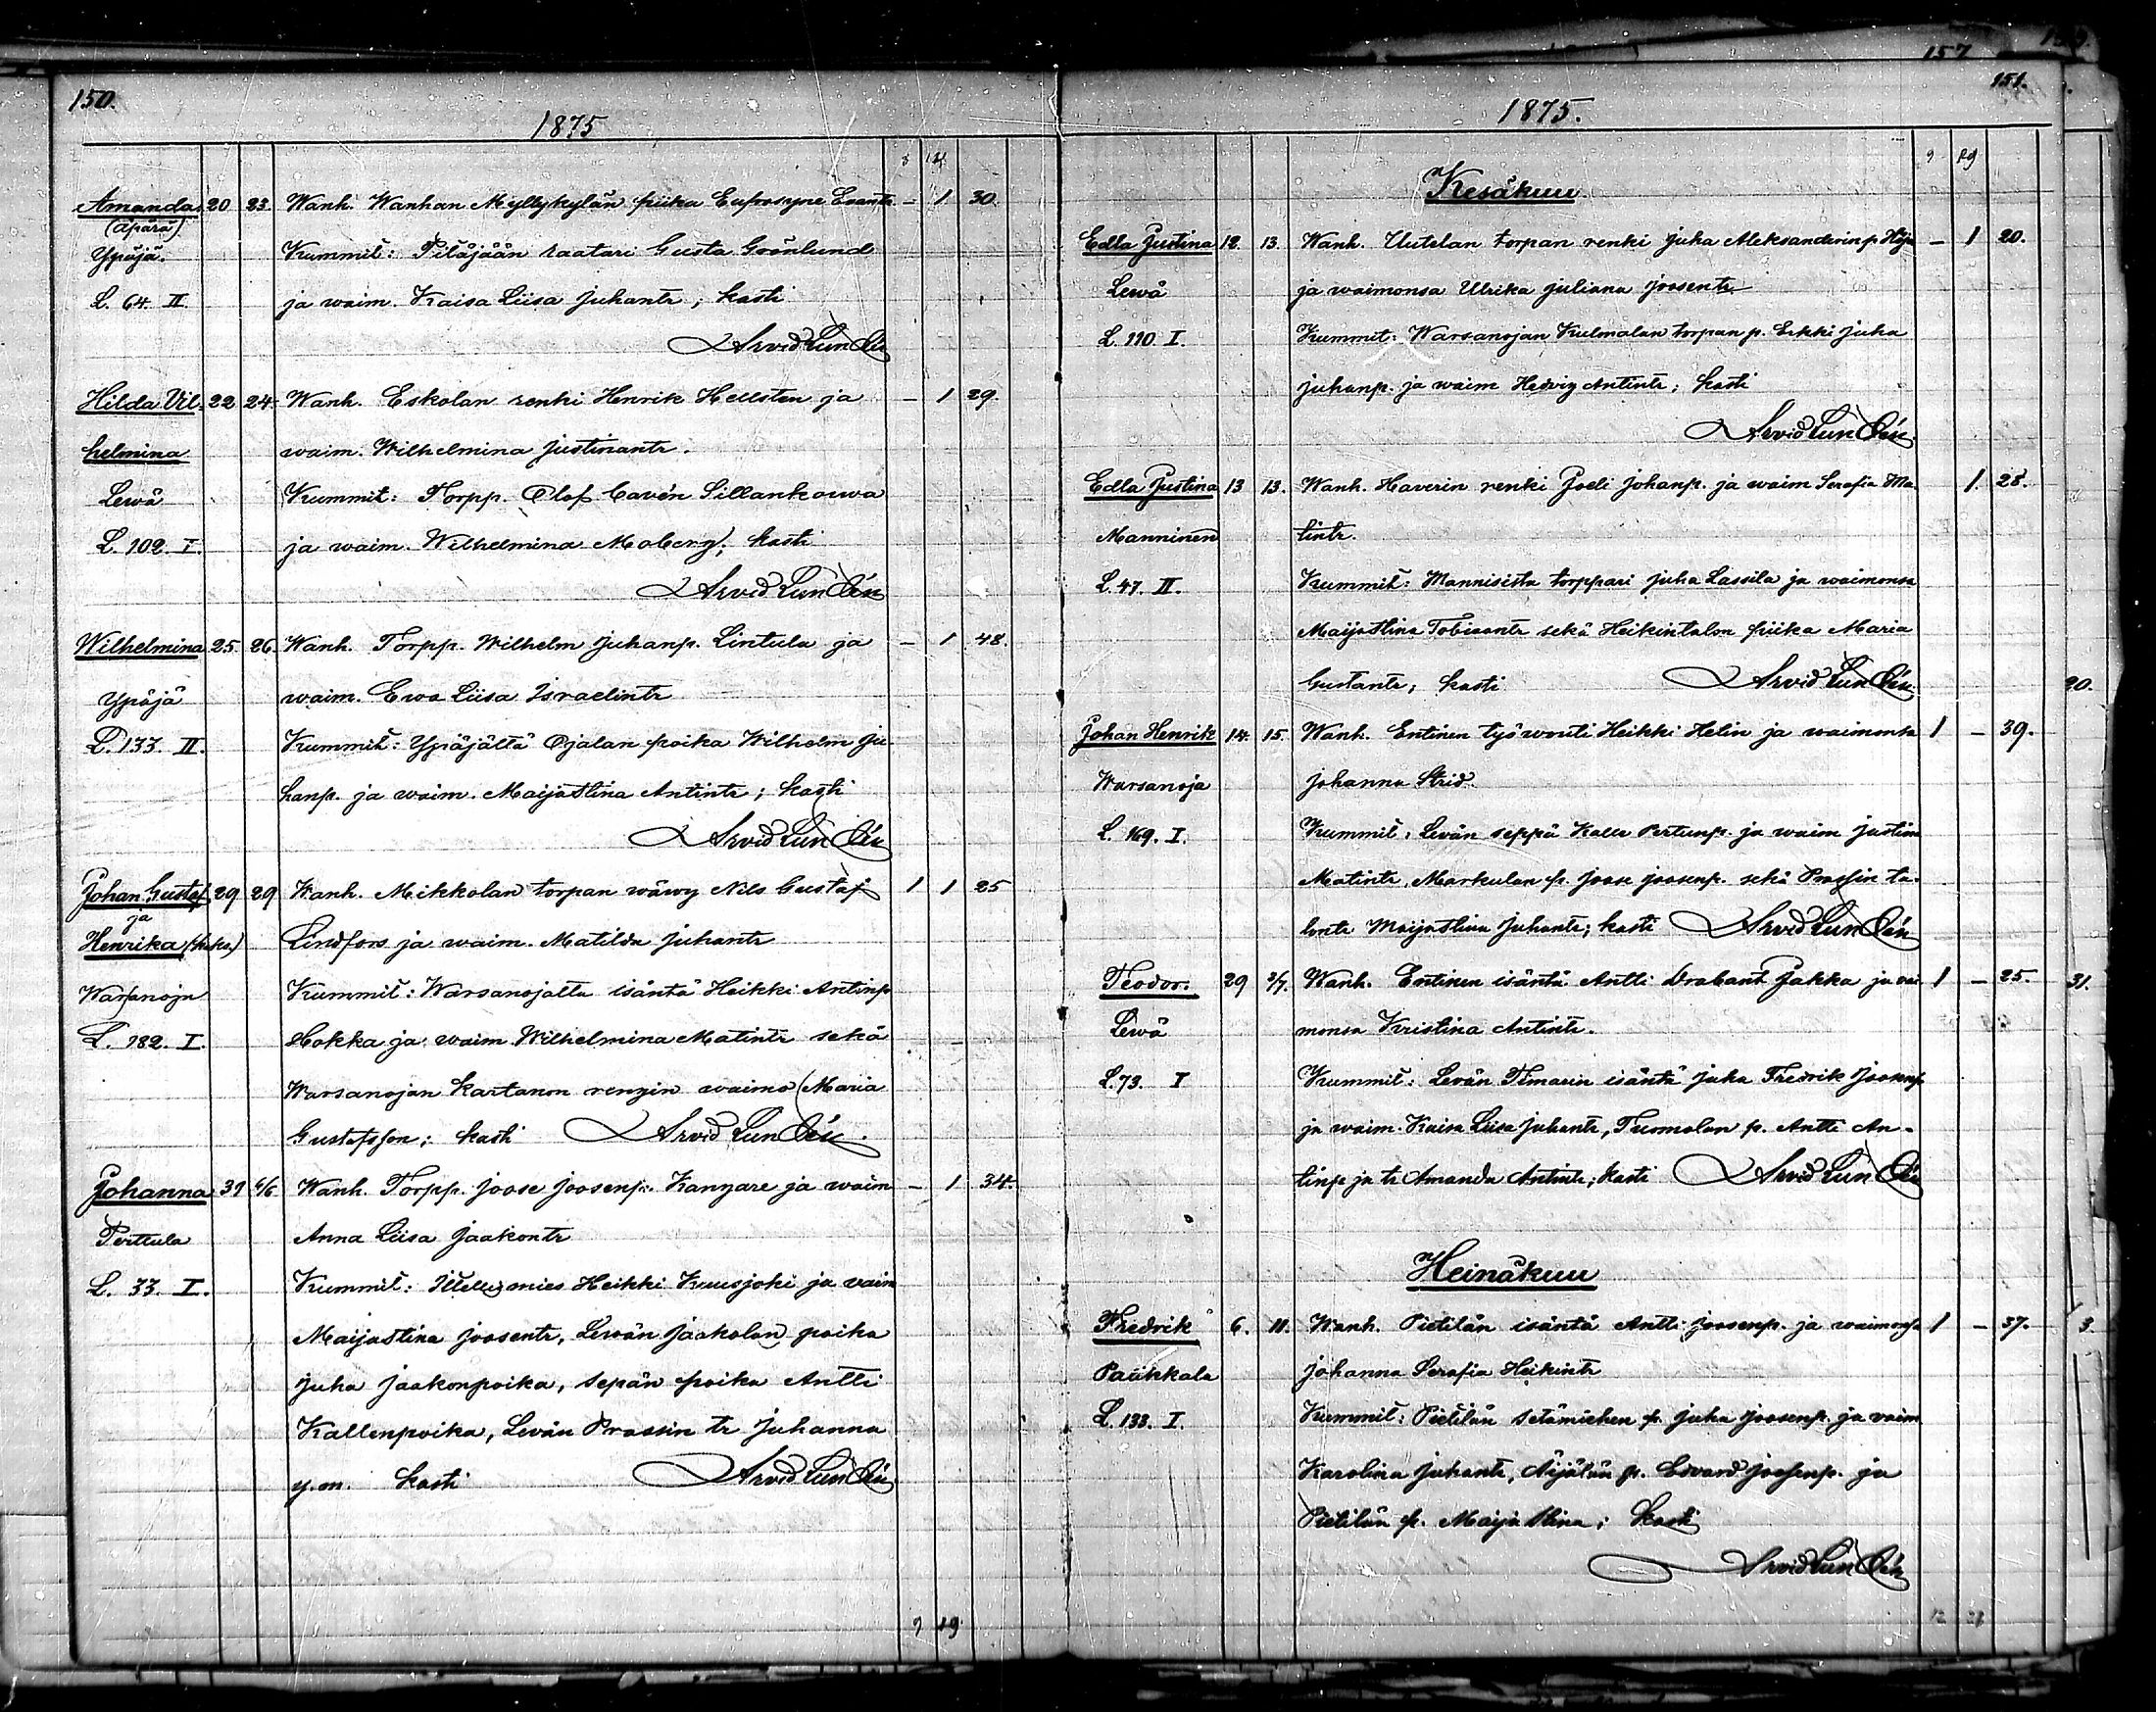 150.
1875
5 14
Amanda 20 23. Wanh. Wanhan Myllykylän piika Euprosyne Evantr — 1 30.
(äpärä)
Ypäjä. Kummit: Pitäjään raatari Gusta Grönlund
L. 64. II. ja waim. Kaisa Liisa Juhantr; kasti
Arvid Lundén
Hilda Vil- 22 24. Wanh. Eskolan renki Henrik Hellsten ja — 1 29.
helmina waim. Wilhelmina Justinantr.
Lewä Kummit: Torpp. Olof Cavén Sillankorwa
L. 102. I. ja waim. Wilhelmina Moberg; kasti
Arvid Lundén
Wilhelmina 25. 26. Wanh. Torpp. Wilhelm Juhanp. Lintula ja — 1 48.
Ypäjä waim. Ewa Liisa Israelintr
L. 133. II. Kummit: Ypäjältä Ojalan poika Wilhelm Ju-
hanp. ja waim. Maijastina Antintr; kasti
Arvid Lundén
Johan Gustaf 29 29 Wanh. Mikkolan torpan wäwy Nils Gustaf 1 1 25
ja
Henrika (kaks.) Lindfors ja waim. Matilda Juhantr
Warsanoja Kummit: Warsanojalta isäntä Heikki Antinp
L. 182. I. Hokka ja waim. Wilhelmina Matintr sekä
Warsanojan kartanon rengin waimo Maria
Gustafsson; kasti Arvid Lundén.
Johanna 31 6/6 Wanh. Torpp. Joose Joosenp. Kangare ja waim — 1 34.
Perttula Anna Liisa Jaakontr
L. 33. I. Kummit: Itellismies Heikki Kuusjoki ja vaim
Maijastina Joosentr, Lewän Jaakolan poika
Juha Jaakonpoika, sepän poika Antti
Kallenpoika, Levän Prassin tr Juhanna
y.m. kasti Arvid Lundén
9 19
157
151.
1875.
9 19
Kesäkuu
Edla Justina 12. 13. Wanh. Uutelan torpan renki Juha Aleksanderinp. — 1 20.
Lewä ja waimonsa Ulrika Juliana Joosentr
L. 110 I. Kummit: Warsanojan Kulmalan torpan p. Erkki Juha
Juhanp. ja waim Hedvig Antintr; kasti
Arvid Lundén.
Edla Justina 13 13. Wanh. Haverin renki Joeli Johanp. ja waim Serafia Ma- 1. 28.
Manninen tintr.
L. 47. II. Kummit: Mannisista torppari Juha Lassila ja waimonsa
Maijastina Tobiaantr sekä Heikintalon piika Maria
Gustantr; kasti Arvid Lundén.
20.
Johan Henrik 14. 15. Wanh. Entinen työwouti Heikki Helin ja waimonsa 1 — 39.
Warsanoja Johanna Strid.
L. 169. I. Kummit: Levän seppä Kalle Pertunp. ja waim Justina
Matintr, Markulan p. Joose Joosenp. sekä Prassin ta-
lontr Maijastina Juhantr; kasti Arvid Lundén
Teodor. 29 3/7. Wanh. Entinen isäntä Antti Drabant Jakka ja vai 1 — 25.
31.
Lewä monsa Kristina Antintr.
L. 73. I Kummit: Levän Simarin isäntä Juha Fredrik Joosenp
ja waim. Kaisa Liisa Juhantr, Tuomolan p. Antti An-
tinp ja tr Amanda Antintr; kasti Arvid Lundén
Heinäkuu
Fredrik 6. 11. Wanh. Pietilän isäntä Antti Joosenp. ja waimonsa 1 — 37.
3.
Paäkkala Johanna Serafia Heikintr
L. 133. I. Kummit: Pietilän setämiehen p. Juha Joosenp. ja vaim
Karolina Juhantr, Äijälän p. Edvard Joosenp. ja
Pietilän p. Maija Stina; kasti
Arvid Lundén
12